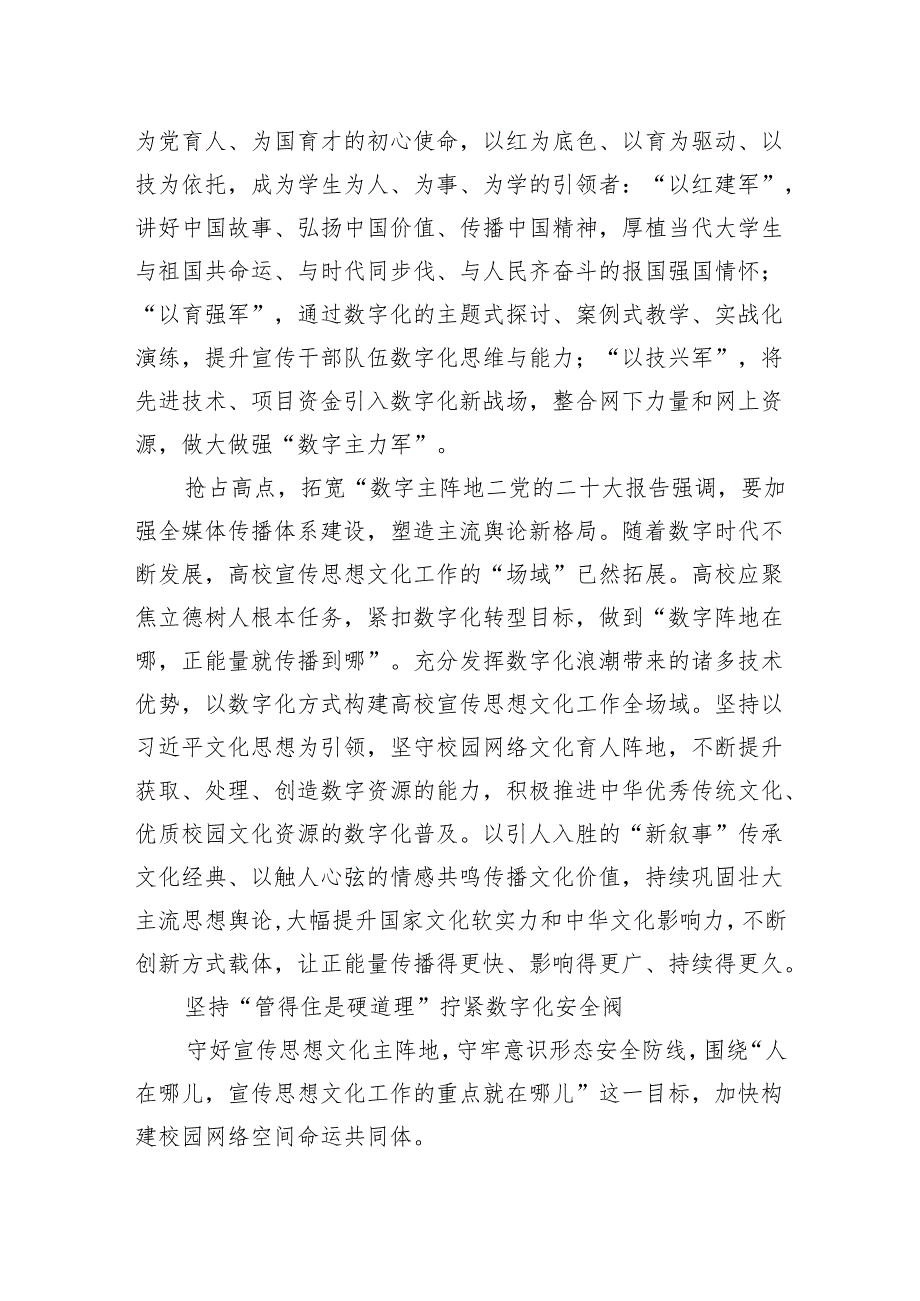 为党育人、为国育才的初心使命，以红为底色、以育为驱动、以
技为依托，成为学生为人、为事、为学的引领者：“以红建军”，
讲好中国故事、弘扬中国价值、传播中国精神，厚植当代大学生
与祖国共命运、与时代同步伐、与人民齐奋斗的报国强国情怀；
“以育强军”，通过数字化的主题式探讨、案例式教学、实战化
演练，提升宣传干部队伍数字化思维与能力；“以技兴军”，将
先进技术、项目资金引入数字化新战场，整合网下力量和网上资
源，做大做强“数字主力军”。
抢占高点，拓宽“数字主阵地二党的二十大报告强调，要加
强全媒体传播体系建设，塑造主流舆论新格局。随着数字时代不
断发展，高校宣传思想文化工作的“场域”已然拓展。高校应聚
焦立德树人根本任务，紧扣数字化转型目标，做到“数字阵地在
哪，正能量就传播到哪”。充分发挥数字化浪潮带来的诸多技术
优势，以数字化方式构建高校宣传思想文化工作全场域。坚持以
习近平文化思想为引领，坚守校园网络文化育人阵地，不断提升
获取、处理、创造数字资源的能力，积极推进中华优秀传统文化、
优质校园文化资源的数字化普及。以引人入胜的“新叙事”传承
文化经典、以触人心弦的情感共鸣传播文化价值，持续巩固壮大
主流思想舆论,大幅提升国家文化软实力和中华文化影响力，不断
创新方式载体，让正能量传播得更快、影响得更广、持续得更久。
坚持“管得住是硬道理”拧紧数字化安全阀
守好宣传思想文化主阵地,守牢意识形态安全防线,围绕“人
在哪儿，宣传思想文化工作的重点就在哪儿”这一目标，加快构
建校园网络空间命运共同体。